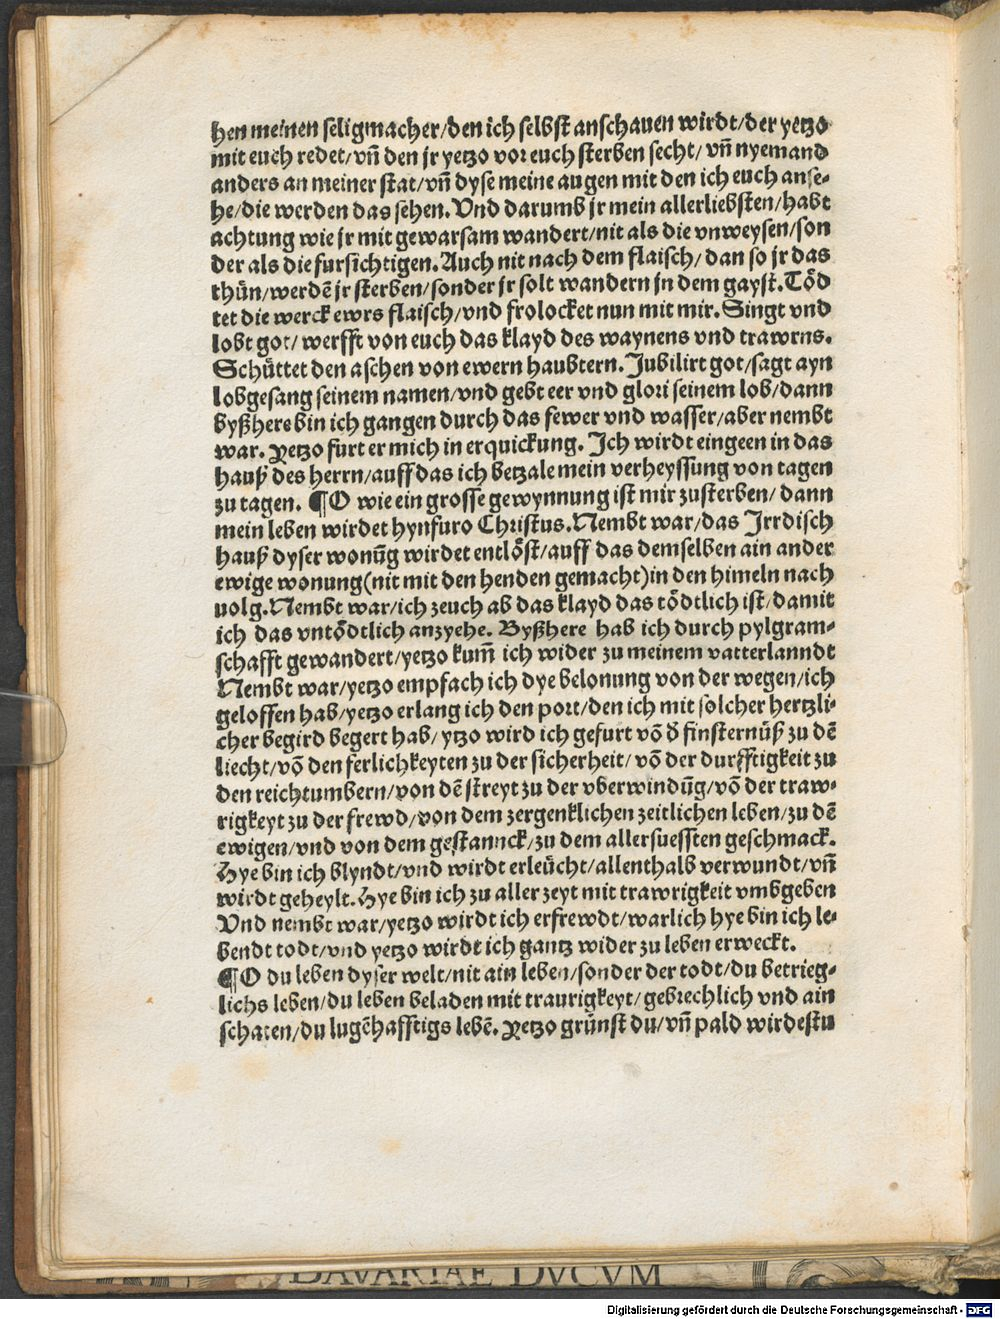 hen meinen seligmacher/den ich selbst anschauen wirdt/der yetzo
mit euch redet/vn̄ den jr yetzo vor euch sterben secht/vn̄ nyemand
anders an meiner stat/vn̄ dyse meine augen mit den ich euch anse-
he/die werden das sehen. Vnd darumb jr mein allerliebsten/habt
achtung wie jr mit gewarsam wandert/nit als die vnweysen/son
der als die fursichtigen. Auch nit nach dem flaisch/dan so jr das
thün/werdē jr sterben/sonder jr solt wandern in dem gayst. Töd
tet die werck ewrs flaisch/vnd frolocket nun mit mir. Singt vnd
lobt got/werfft von euch das klayd des waynens vnd trawrns.
Schüttet den aschen von ewern haubtern. Jubilirt got/sagt ayn
lobgesang seinem namen/vnd gebt eer vnd glori seinem lob/dann
byßhere bin ich gangen durch das fewer vnd wasser/aber nembt
war. Yetzo furt er mich in erquickung. Ich wirdt eingeen in das
hauß des herrn/auff das ich betzale mein verheyssung von tagen
zu tagen. ¶O wie ein grosse gewynnung ist mir zusterben/dann
mein leben wirdet hynfuro Christus. Nembt war/das Irrdisch
hauß dyser wonūg wirdet entlöst/auff das demselben ain ander
ewige wonung(nit mit den henden gemacht)in den himeln nach
uolg. Nembt war/ich zeuch ab das klayd das tödtlich ist/damit
ich das vntödtlich anzyehe. Byßhere hab ich durch pylgram-
schafft gewandert/yetzo kum̄ ich wider zu meinem vatterlanndt
Nembt war/yetzo empfach ich dye belonung von der wegen/ich
geloffen hab/yetzo erlang ich den port/den ich mit solcher hertzli-
cher begird begert hab/ytzo wird ich gefurt vō d̄ finsternüß zu dē
liecht/vō den ferlichkeyten zu der sicherheit/vō der durfftigkeit zu
den reichtumbern/von dē streyt zu der vberwindūg/vō der traw-
rigkeyt zu der frewd/von dem zergenklichen zeitlichen leben/zu dē
ewigen/vnd von dem gestannck/zu dem allersuessten geschmack.
Hye bin ich blyndt/vnd wirdt erleücht/allenthalb verwundt/vn̄
wirdt geheylt. Hye bin ich zu aller zeyt mit trawrigkeit vmbgeben
Vnd nembt war/yetzo wirdt ich erfrewdt/warlich hye bin ich le-
bendt todt/vnd yetzo wirdt ich gantz wider zu leben erweckt.
¶O du leben dyser welt/nit ain leben/sonder der todt/du betrieg-
lichs leben/du leben beladen mit traurigkeyt/gebrechlich vnd ain
schaten/du lugēhafftigs lebē. Yetzo grünst du/vn̄ pald wirdestu
BAVARIAE DVCVM
Digitalisierung gefördert durch die Deutsche Forschungsgemeinschaft - DFG